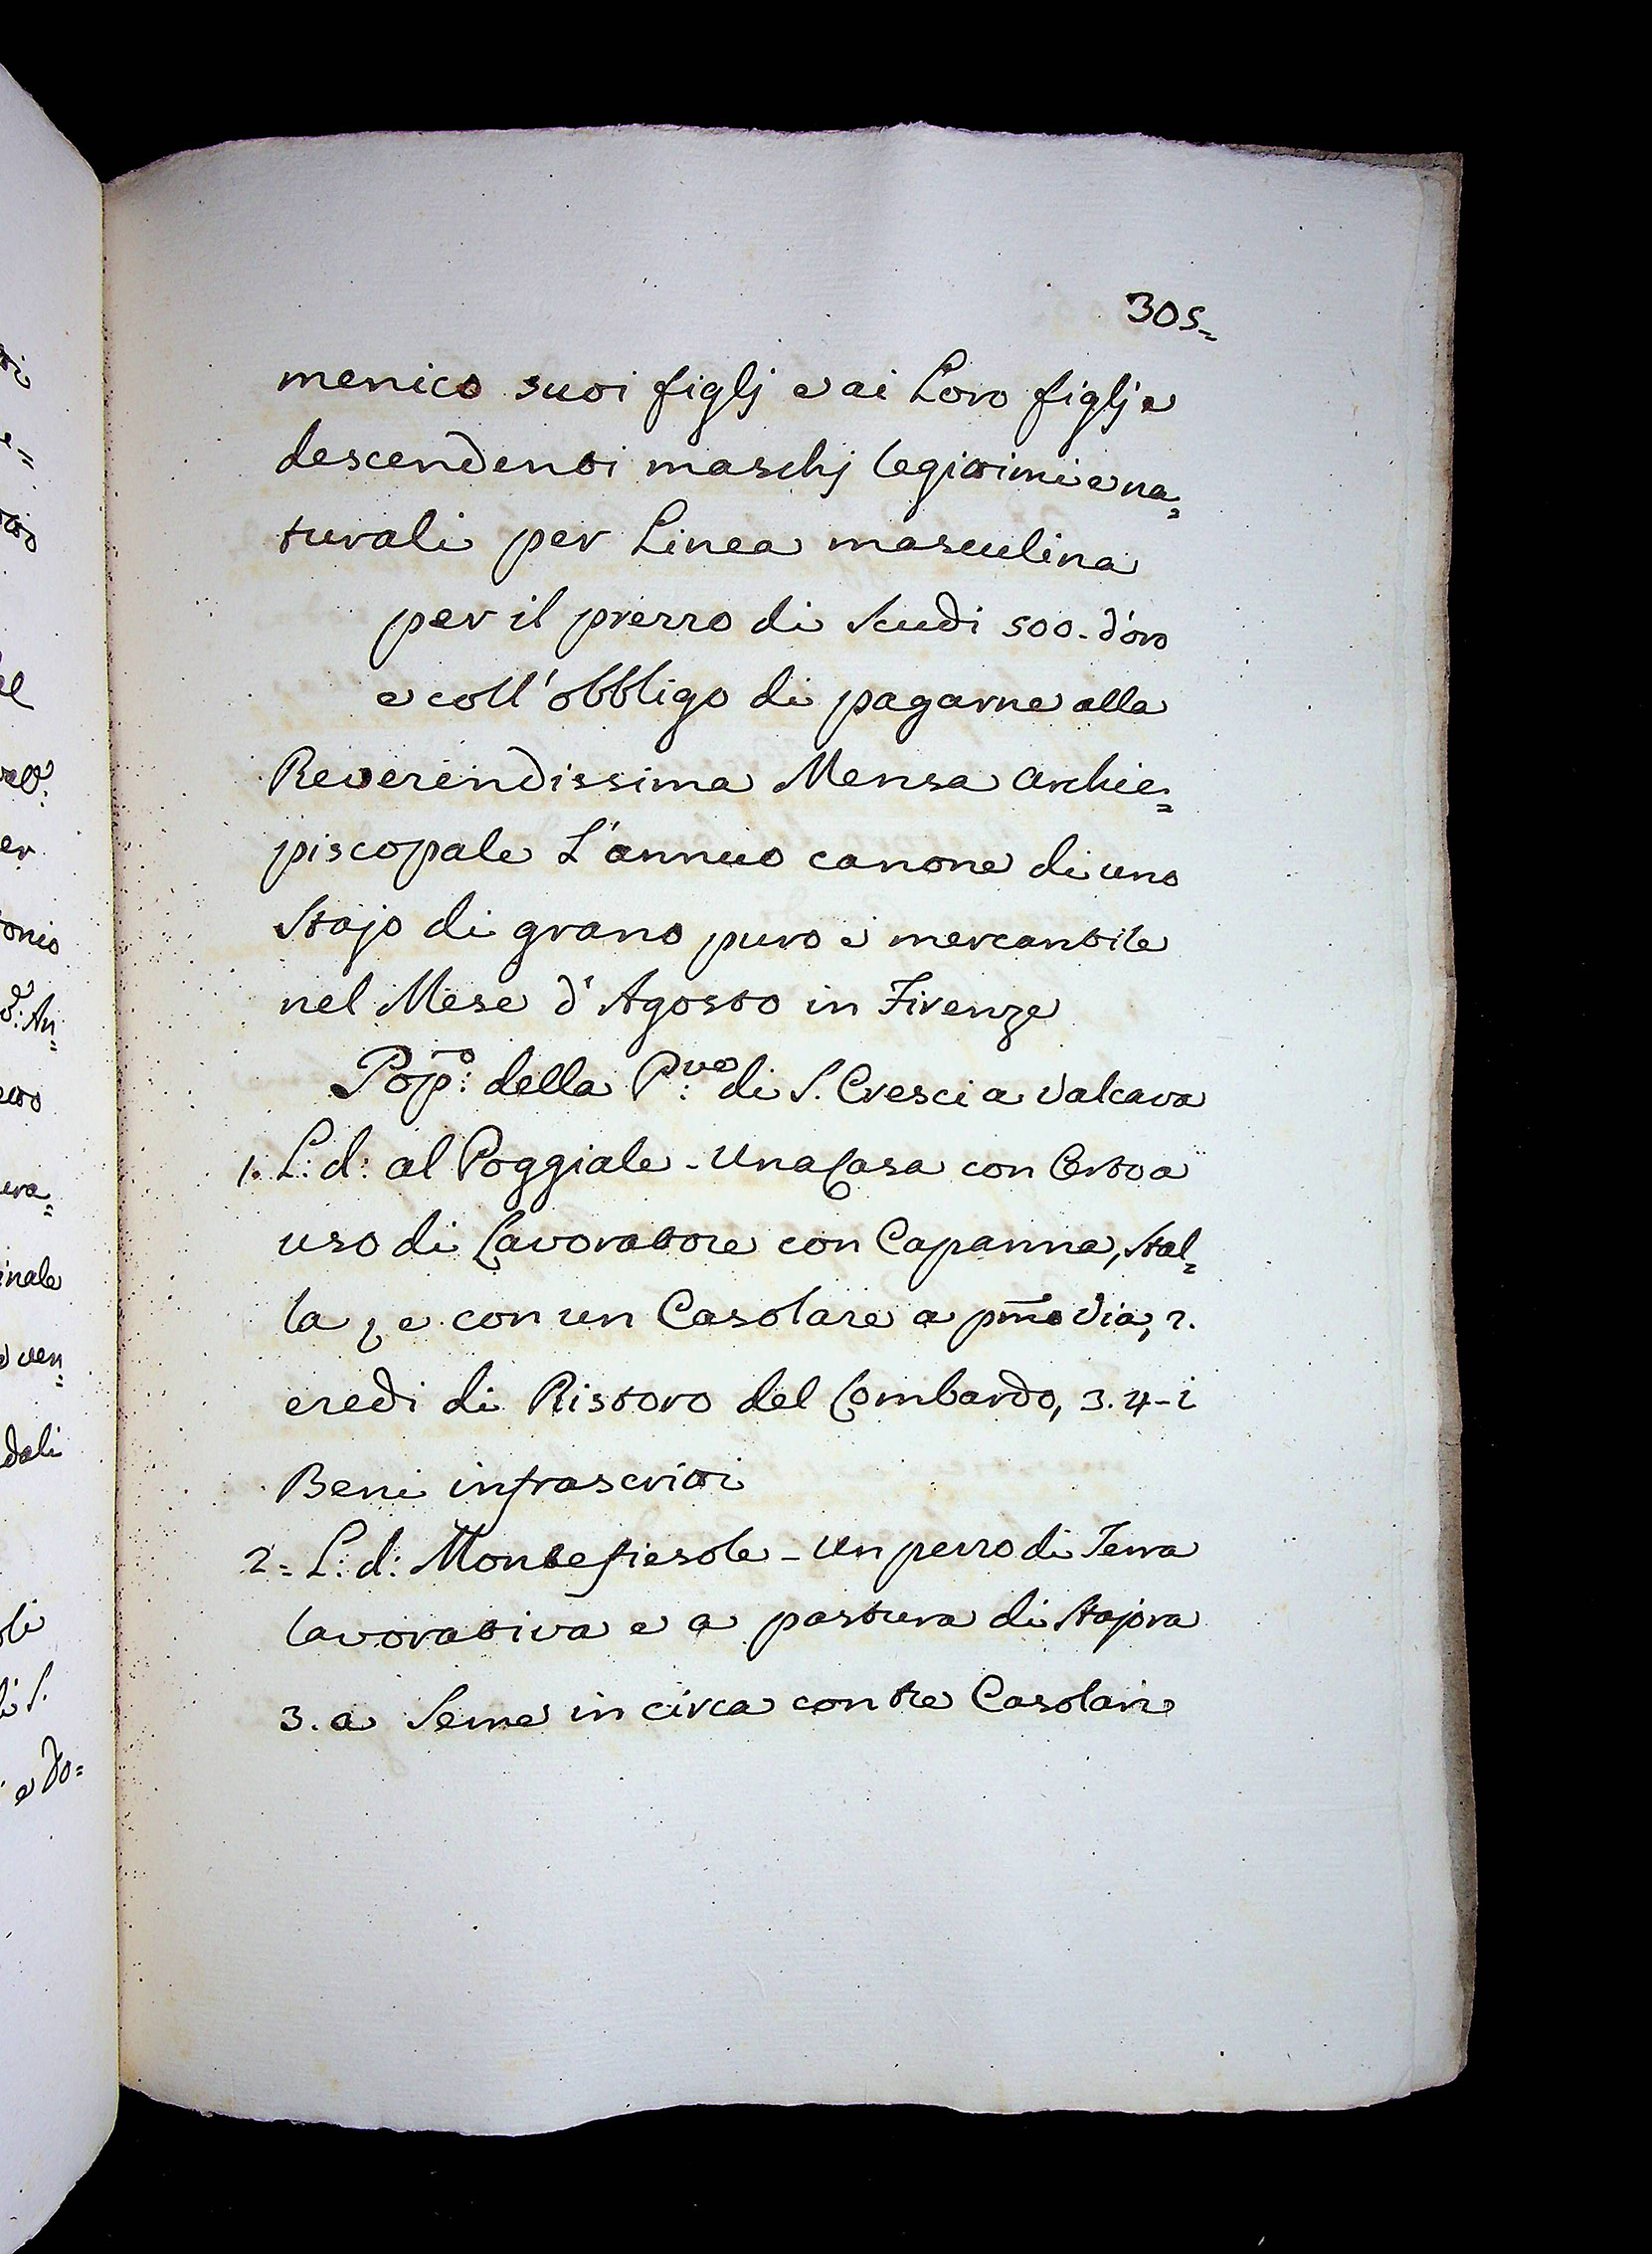 305=
menico suoi figlj e ai Loro figlj e
descendenti maschj legitimi e na=
turali per Linea masculina
per il prezzo di Scudi 500. d'oro
e coll'obbligo di pagarne alla
Reverendissima Mensa Archie=
piscopale L'annuo canone di uno
Stajo di grano puro e mercantile
nel Mese d'Agosto in Firenze
Pop:o della P:ve di S. Cresci a Valcava
1. L: d: al Poggiale - Una Casa con Corto a
uso di Lavoratore con Capanna, Stal=
la, e con un Casolare a pmo Via, 2.
eredi di Ristoro del Lombardo, 3. 4 - i
Beni infrascritti
2= L: d: Montefiesole - Un pezzo di Terra
lavorativa e a pastura di Stajora
3. a Seme in circa con tre Casolari